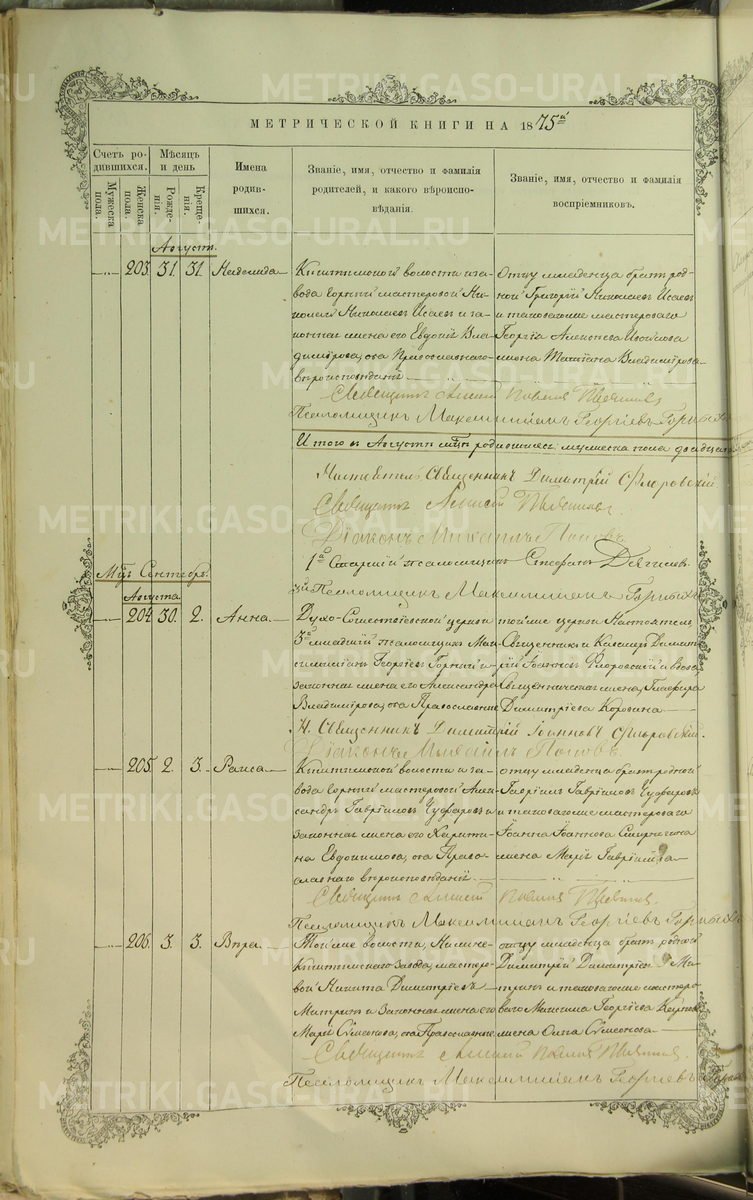 METRIKI.GASO-URAL.RU
МЕТРИЧЕСКОЙ КНИГИ НА 1875й
Счетъ родившихся.
Мѣсяцъ и день
Имена родившихся.
Званіе, имя, отчество и фамилія родителей, и какого вѣроисповѣданія.
Званіе, имя, отчество и фамилія воспріемниковъ.
Мужеска пола.
Женска пола.
Рожденія.
Крещенія.
Августъ.
203. 31. 31.
Кыштымской волости и завода горный мастеровой Николай Николаевъ Исаевъ и законная жена его Евдокія Владимірова, оба Православнаго вѣроисповѣданія
Отцу младенца братъ родной Григорій Николаевъ Исаевъ и таковаго же мастероваго Георгія Алексѣева жена Татіана Владимірова
Священникъ Алексій
Псаломщикъ Максимиліанъ Георгіевъ Горныхъ
Итого въ Августѣ мцѣ родившихся мужеска пола двадцать
Настоятель Священникъ Димитрій Флоровскій
Священникъ Алексій
Діаконъ Михаилъ Поповъ
1й Старшій псаломщикъ Стефанъ Дягилевъ
3й Псаломщикъ Максимиліанъ Горныхъ
Мцъ Сентябрь.
Августа
204. 30. 2. Анна
Духо-Сошественской церкви 3й младшій псаломщикъ Максимиліанъ Георгіевъ Горныхъ и законная жена его Александра Владимірова, оба Православные
той же церкви Настоятель Священникъ и Димитрій Іоанновъ Флоровскій и Вдова, Священническая жена, Глафира Димитріева Коровина
Н. Священникъ Димитрій Іоанновъ Флоровскій.
Діаконъ Михаилъ Поповъ.
205. 2. 3. Раиса
Кыштымской волости и завода горный мастеровой Александръ Гавріиловъ и законная жена его Харитина Евдокимова, оба Православнаго вѣроисповѣданія
отцу младенца братъ родной Гавріилъ Гавріиловъ и таковаго же мастероваго Іоанна Іоаннова жена Марія Гавріилова
Священникъ Алексій
Псаломщикъ Максимиліанъ Георгіевъ Горныхъ
206. 3. 3. Вѣра.
Той же волости, Нижне-Кыштымскаго завода, мастеровой Никита Димитріевъ Митринъ и законная жена его Марія Симеонова, оба Православные
отцу младенца братъ родной Димитрій Димитріевъ Митринъ и таковаго же мастероваго Максима Георгіева жена Ольга Симеонова
Священникъ Алексій
Псаломщикъ Максимиліанъ Георгіевъ